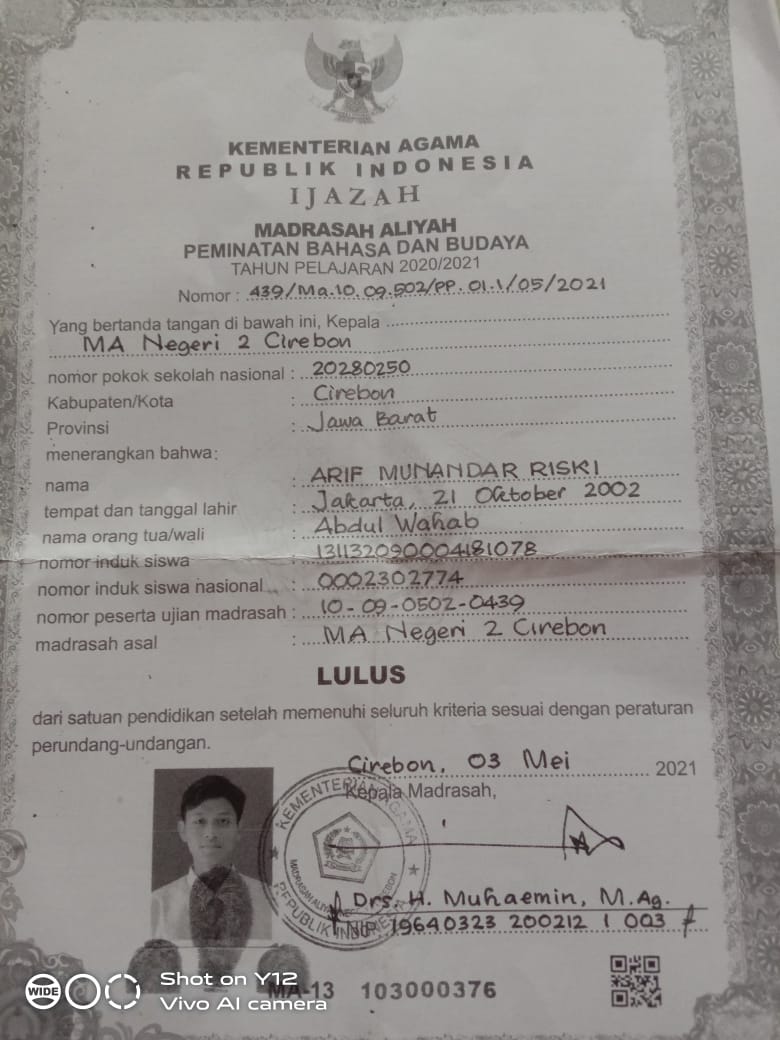 KEMENTERIAN AGAMA
REPUBLIK INDONESIA
IJAZAH
MADRASAH ALIYAH
PEMINATAN BAHASA DAN BUDAYA
TAHUN PELAJARAN 2020/2021
Nomor : 439/Ma.10.09.502/PP.01.1/05/2021
Yang bertanda tangan di bawah ini, Kepala
MA Negeri 2 Cirebon
nomor pokok sekolah nasional : 20280250
Kabupaten/Kota : Cirebon
Provinsi : Jawa Barat
menerangkan bahwa:
nama : ARIF MUNANDAR RISKI
tempat dan tanggal lahir : Jakarta, 21 Oktober 2002
nama orang tua/wali : Abdul Wahab
nomor induk siswa : 131132090004181078
nomor induk siswa nasional : 0002302774
nomor peserta ujian madrasah : 10-09-0502-0439
madrasah asal : MA Negeri 2 Cirebon
LULUS
dari satuan pendidikan setelah memenuhi seluruh kriteria sesuai dengan peraturan
perundang-undangan.
Cirebon, 03 Mei 2021
Kepala Madrasah,
KEMENTERIAN AGAMA
REPUBLIK INDONESIA
Drs. H. Muhaemin, M.Ag.
NIP 19640323 200212 1 003
MA-13 103000376
WIDE
Shot on Y12
Vivo AI camera